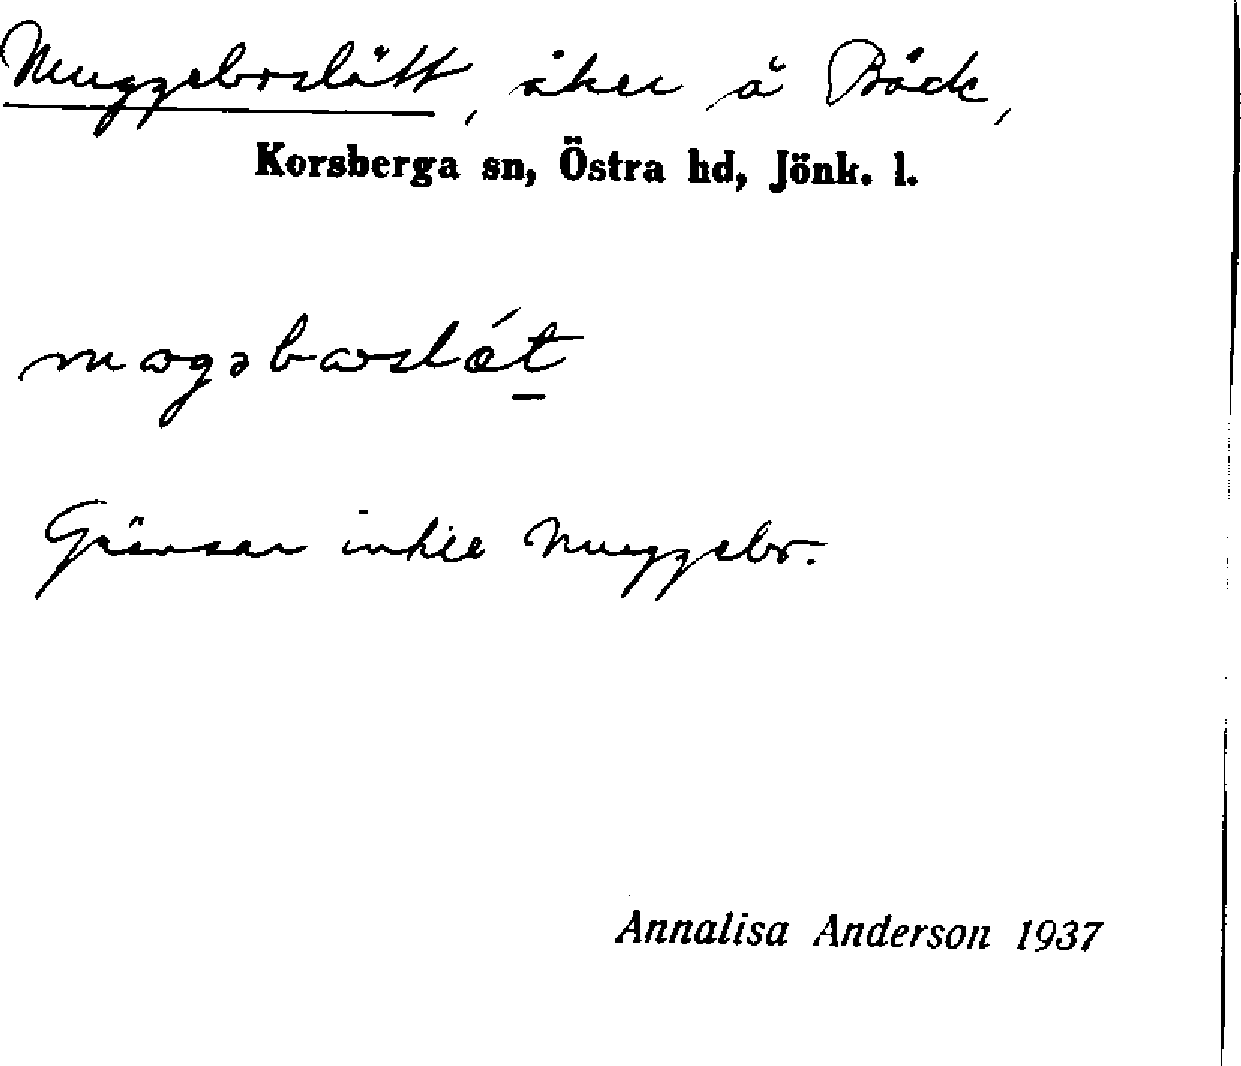 Muggeborslätt, åker å Bäck,
Korsberga sn, Östra hd, Jönk. l.
Gränsar intill Muggebo.
Annalisa Anderson 1937